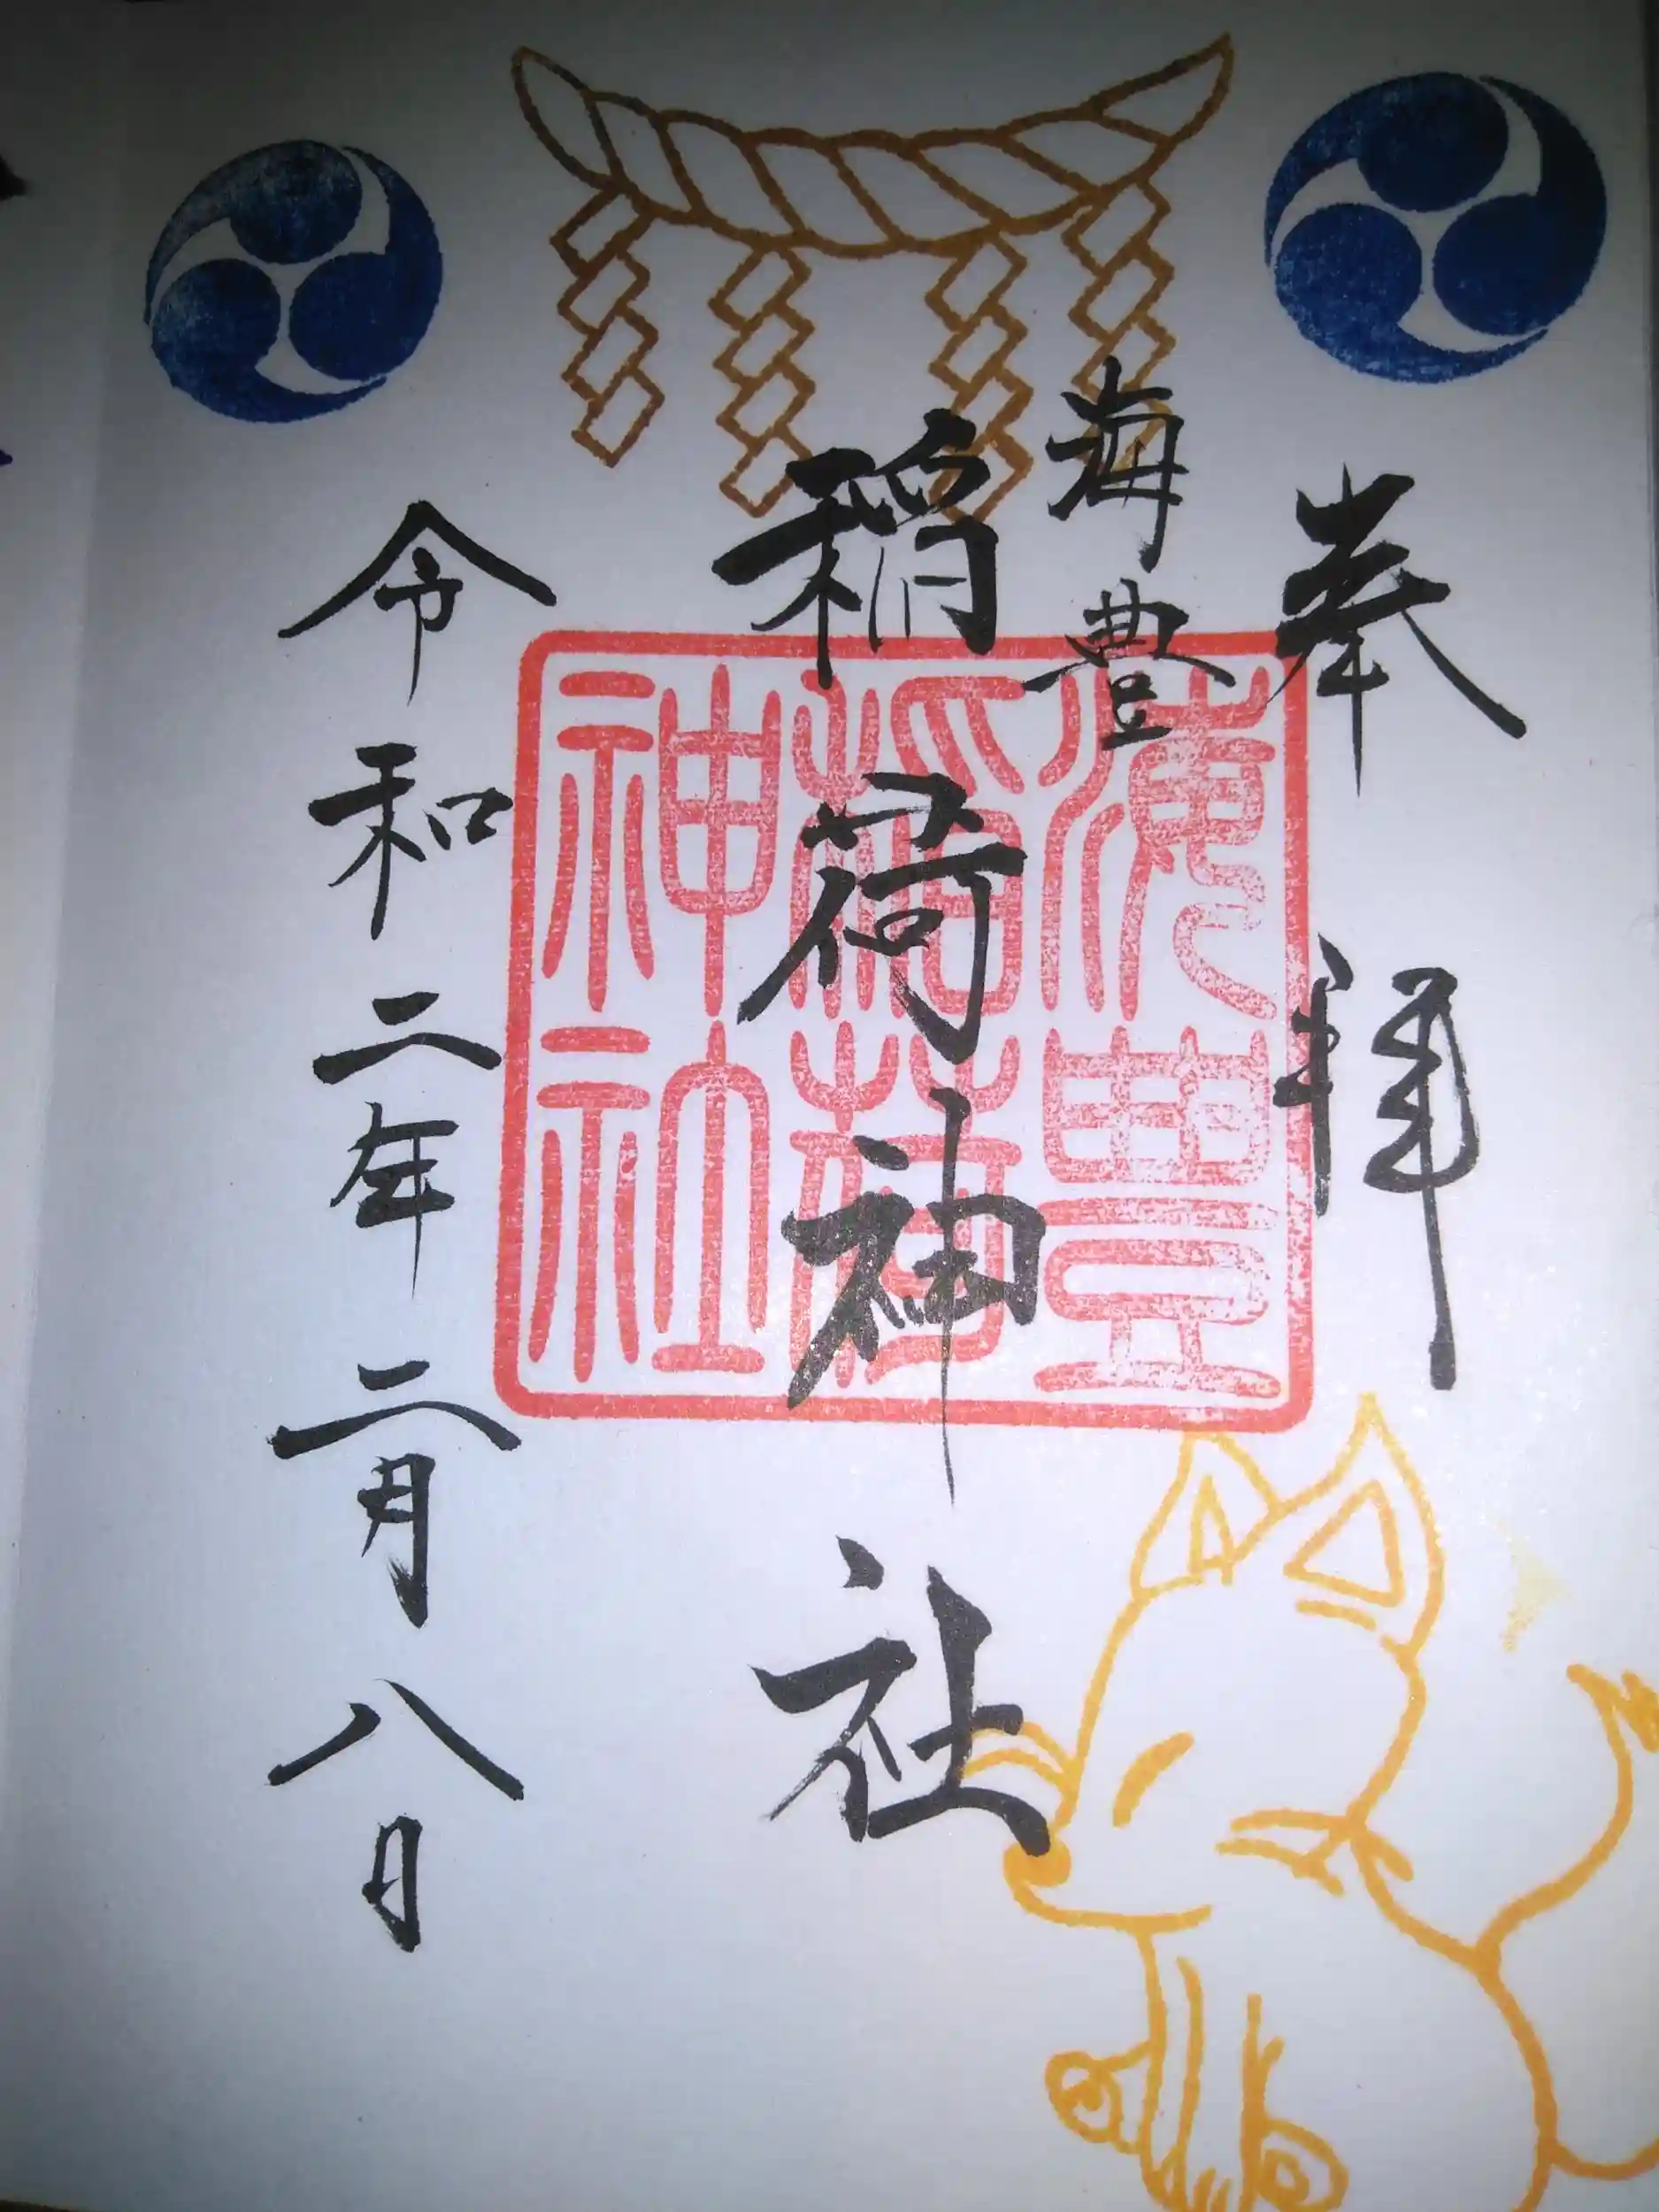 奉拝
海豊
稲荷神社
令和二年二月八日
海豊
稲荷
神社